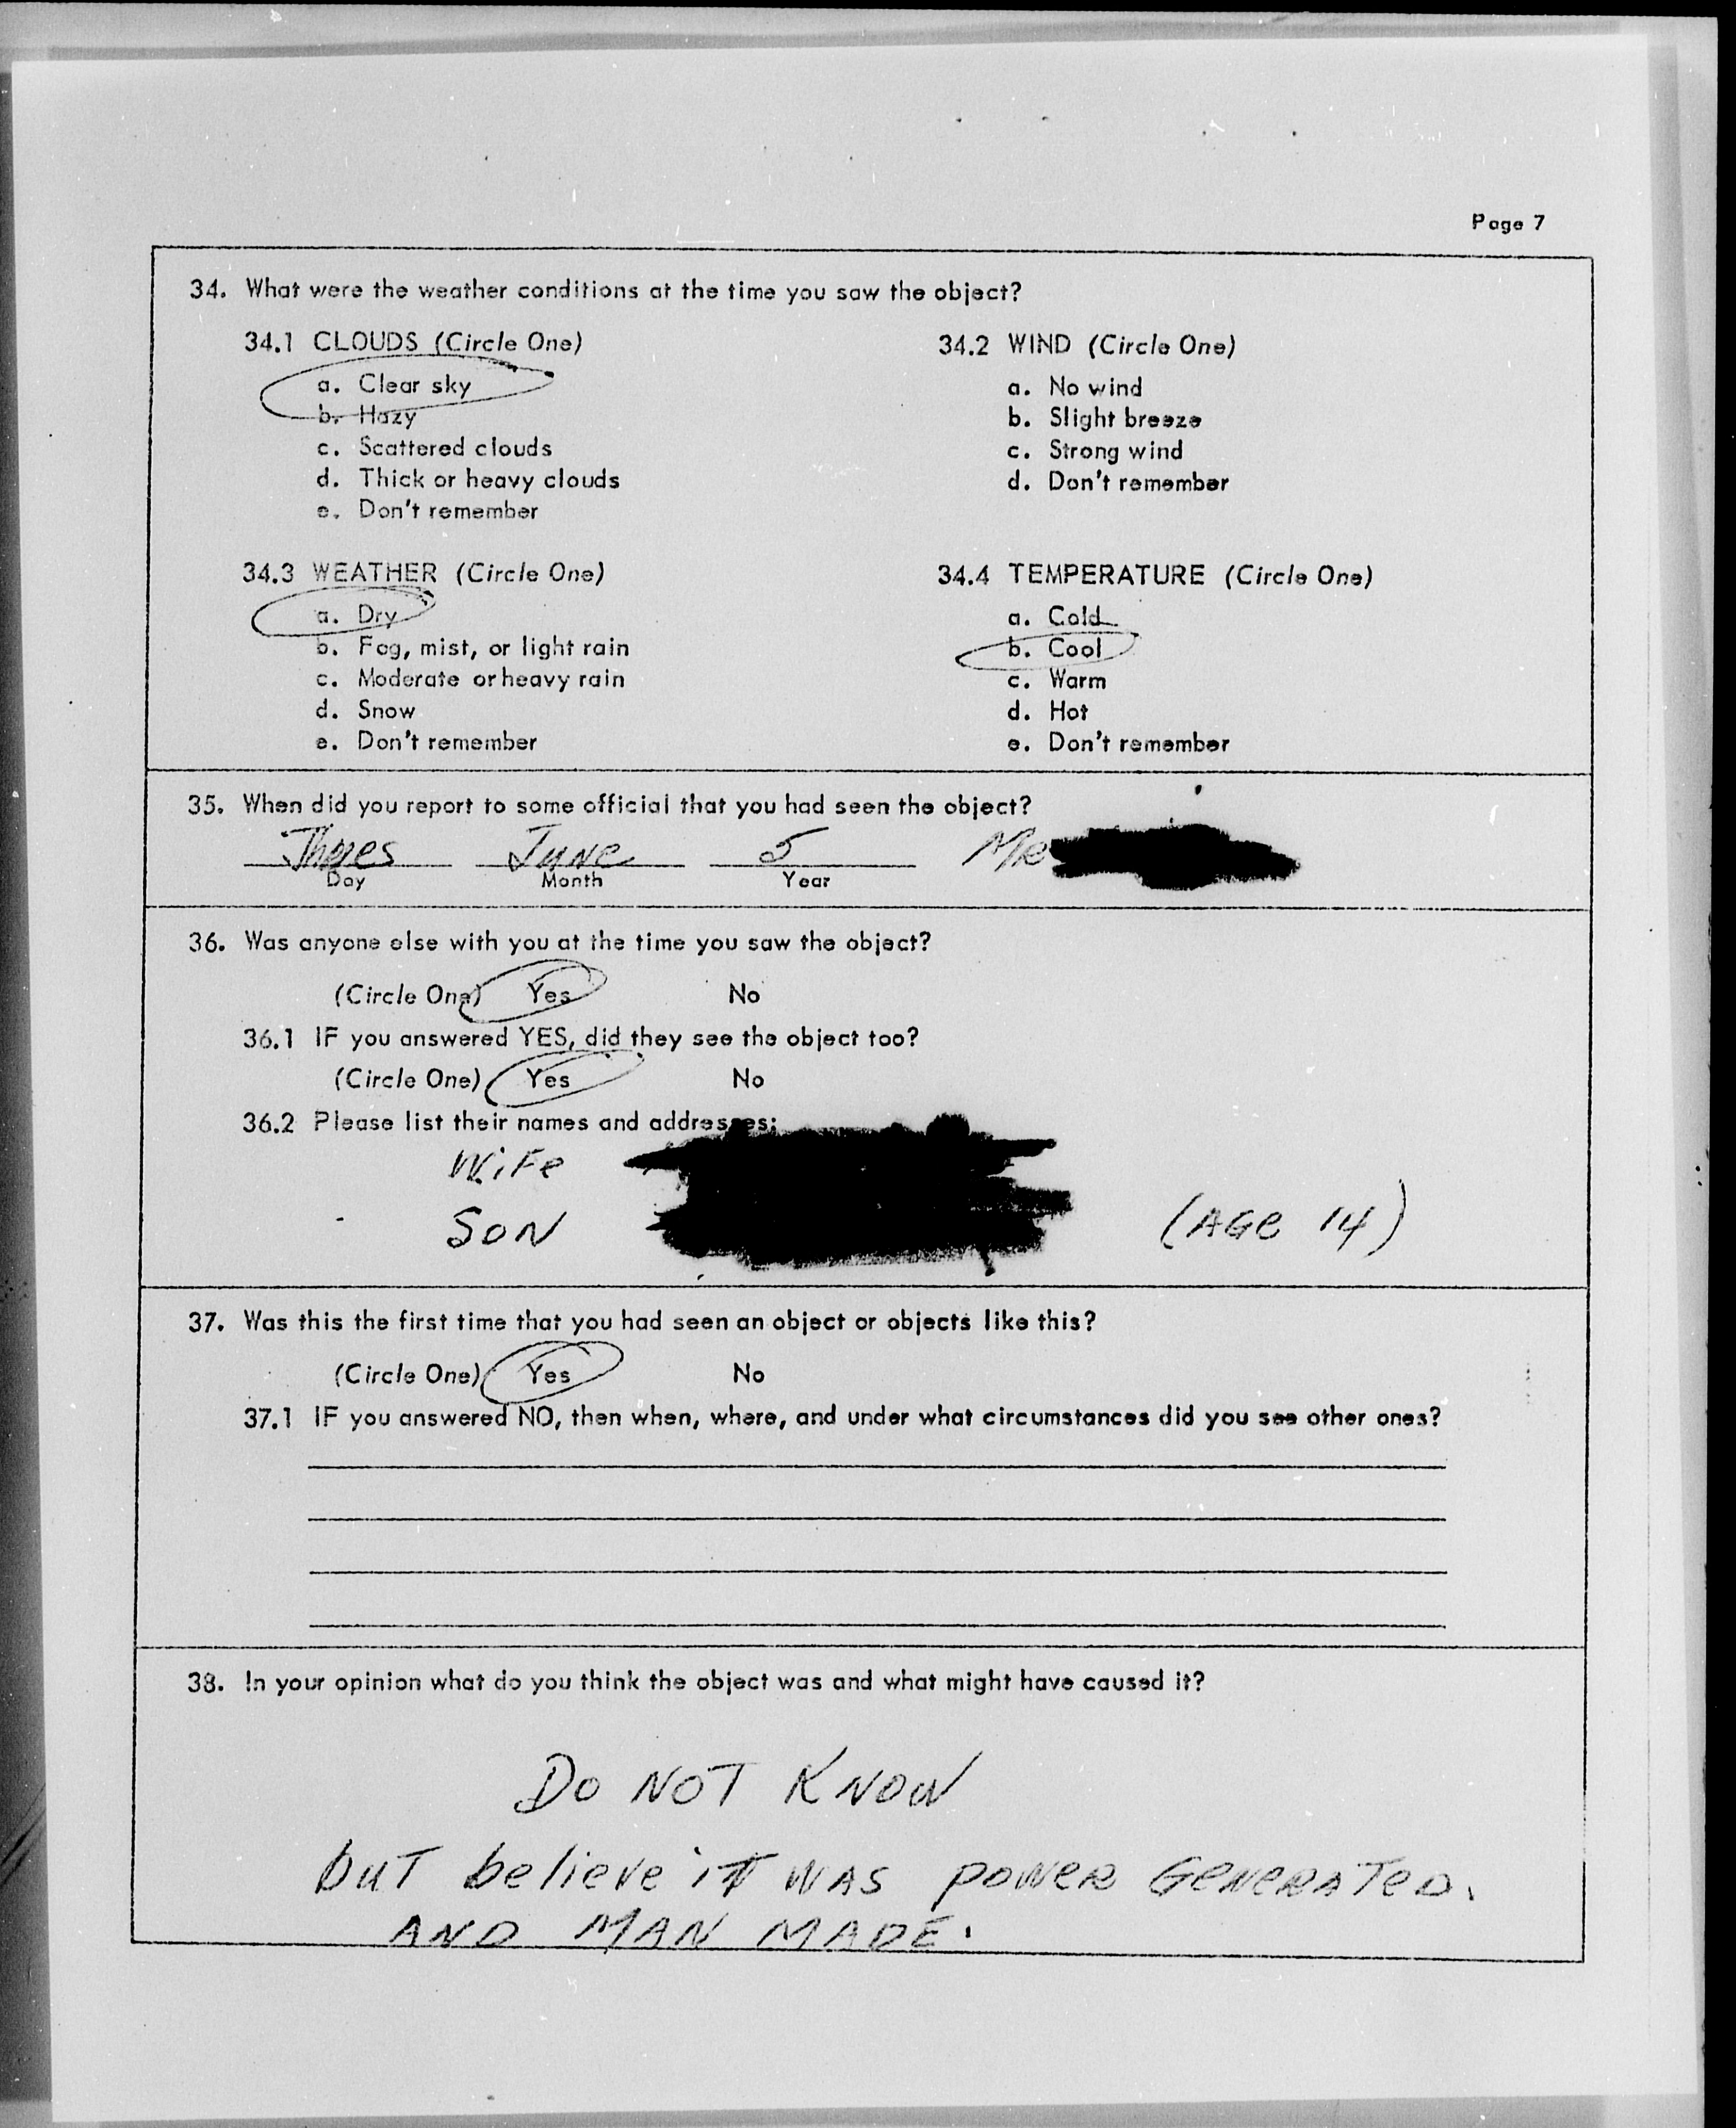 Page 7
34. What were the weather conditions at the time you saw the object?
34.1 CLOUDS (Circle One)
a. Clear sky
b. Hazy
c. Scattered clouds
d. Thick or heavy clouds
e. Don't remember
34.2 WIND (Circle One)
a. No wind
b. Slight breeze
c. Strong wind
d. Don't remember
34.3 WEATHER (Circle One)
a. Dry
b. Fog, mist, or light rain
c. Moderate or heavy rain
d. Snow
e. Don't remember
34.4 TEMPERATURE (Circle One)
a. Cold
b. Cool
c. Warm
d. Hot
e. Don't remember
35. When did you report to some official that you had seen the object?
June 5 MR
Day Month Year
36. Was anyone else with you at the time you saw the object?
(Circle One) Yes No
36.1 IF you answered YES, did they see the object too?
(Circle One) Yes No
36.2 Please list their names and addresses:
WiFe
SON (AGe 14)
37. Was this the first time that you had seen an object or objects like this?
(Circle One) Yes No
37.1 IF you answered NO, then when, where, and under what circumstances did you see other ones?
38. In your opinion what do you think the object was and what might have caused it?
DO NOT KNOW
buT believe iT WAS POWER GeNeRATeD.
AND MAN MADE.